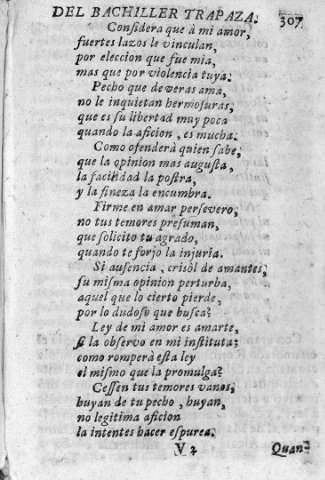 DEL BACHILLER TRAPAZA. 307
Conſidera que à mi amor,
fuertes lazos le vinculan,
por eleccion que fue mia,
mas que por violencia tuya.
Pecho que deveras ama,
no le inquietan hermoſuras,
que es ſu libertad muy poca
quando la aficion, es mucha.
Como ofenderà quien ſabe,
que la opinion mas auguſta,
la facilidad la poſtra,
y la fineza la encumbra.
Firme en amar perſevero,
no tus temores preſuman,
que ſolicito tu agrado,
quando te forjo la injuria.
Si auſencia, criſòl de amantes,
ſu miſma opinion perturba,
aquel que lo cierto pierde,
por lo dudoſo que buſca?
Ley de mi amor es amarte,
ſi la obſervo en mi inſtituta;
como romperà eſta ley
el miſmo que la promulga?
Ceſſen tus temores vanos,
huyan de tu pecho, huyan,
no legitima aficion
la intentes hacer eſpurea.
V 2 Quan-